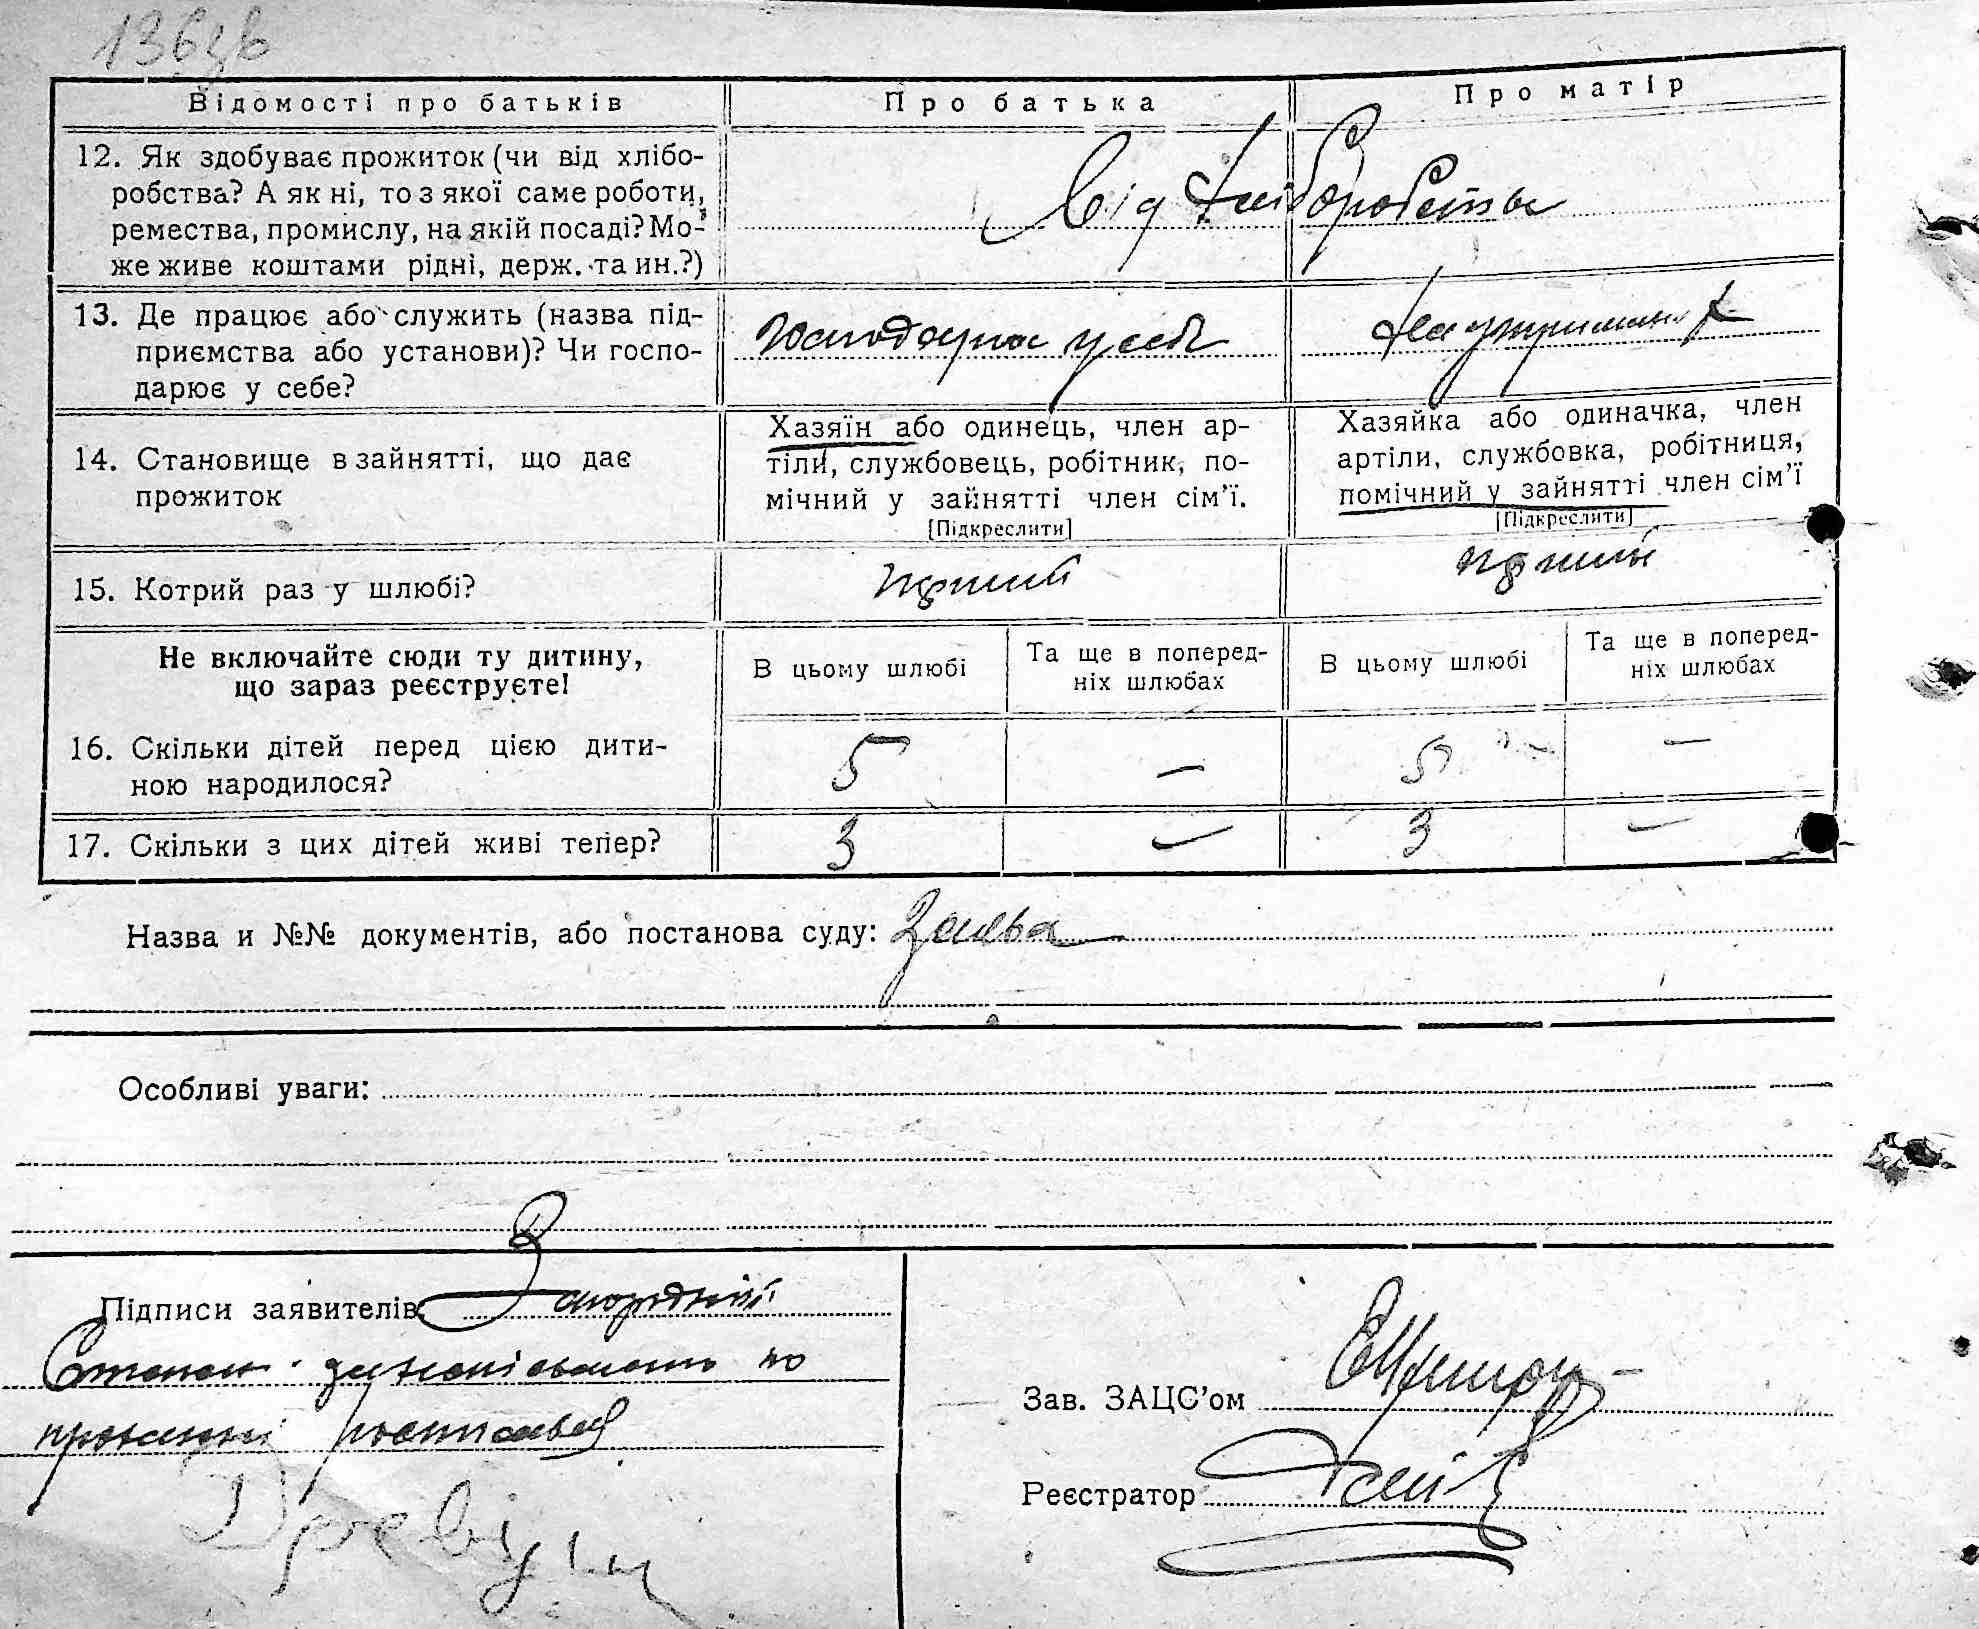 136зв
Відомості про батьків
Про батька
Про матір
12. Як здобуває прожиток (чи від хлібо-
робства? А як ні, то з якої саме роботи,
ремества, промислу, на якій посаді? Мо-
же живе коштами рідні, держ. та ин.?)
Від хліборобства
13. Де працює або служить (назва під-
приємства або установи)? Чи госпо-
дарює у себе?
Господарює у себе
На утриманні
14. Становище в зайнятті, що дає
прожиток
Хазяїн або одинець, член ар-
тіли, службовець, робітник, по-
мічний у зайнятті член сім'ї.
[Підкреслити]
Хазяйка або одиначка, член
артіли, службовка, робітниця,
помічний у зайнятті член сім'ї
[Підкреслити]
15. Котрий раз у шлюбі?
перший
перший
Не включайте сюди ту дитину,
що зараз реєструєте!
В цьому шлюбі
Та ще в поперед-
ніх шлюбах
В цьому шлюбі
Та ще в поперед-
ніх шлюбах
16. Скільки дітей перед цією дити-
ною народилося?
5 — 5 —
17. Скільки з цих дітей живі тепер?
3 — 3 —
Назва и №№ документів, або постанова суду: Заява
Особливі уваги:
Підписи заявителів
Степан
Зав. ЗАЦС'ом
Реєстратор